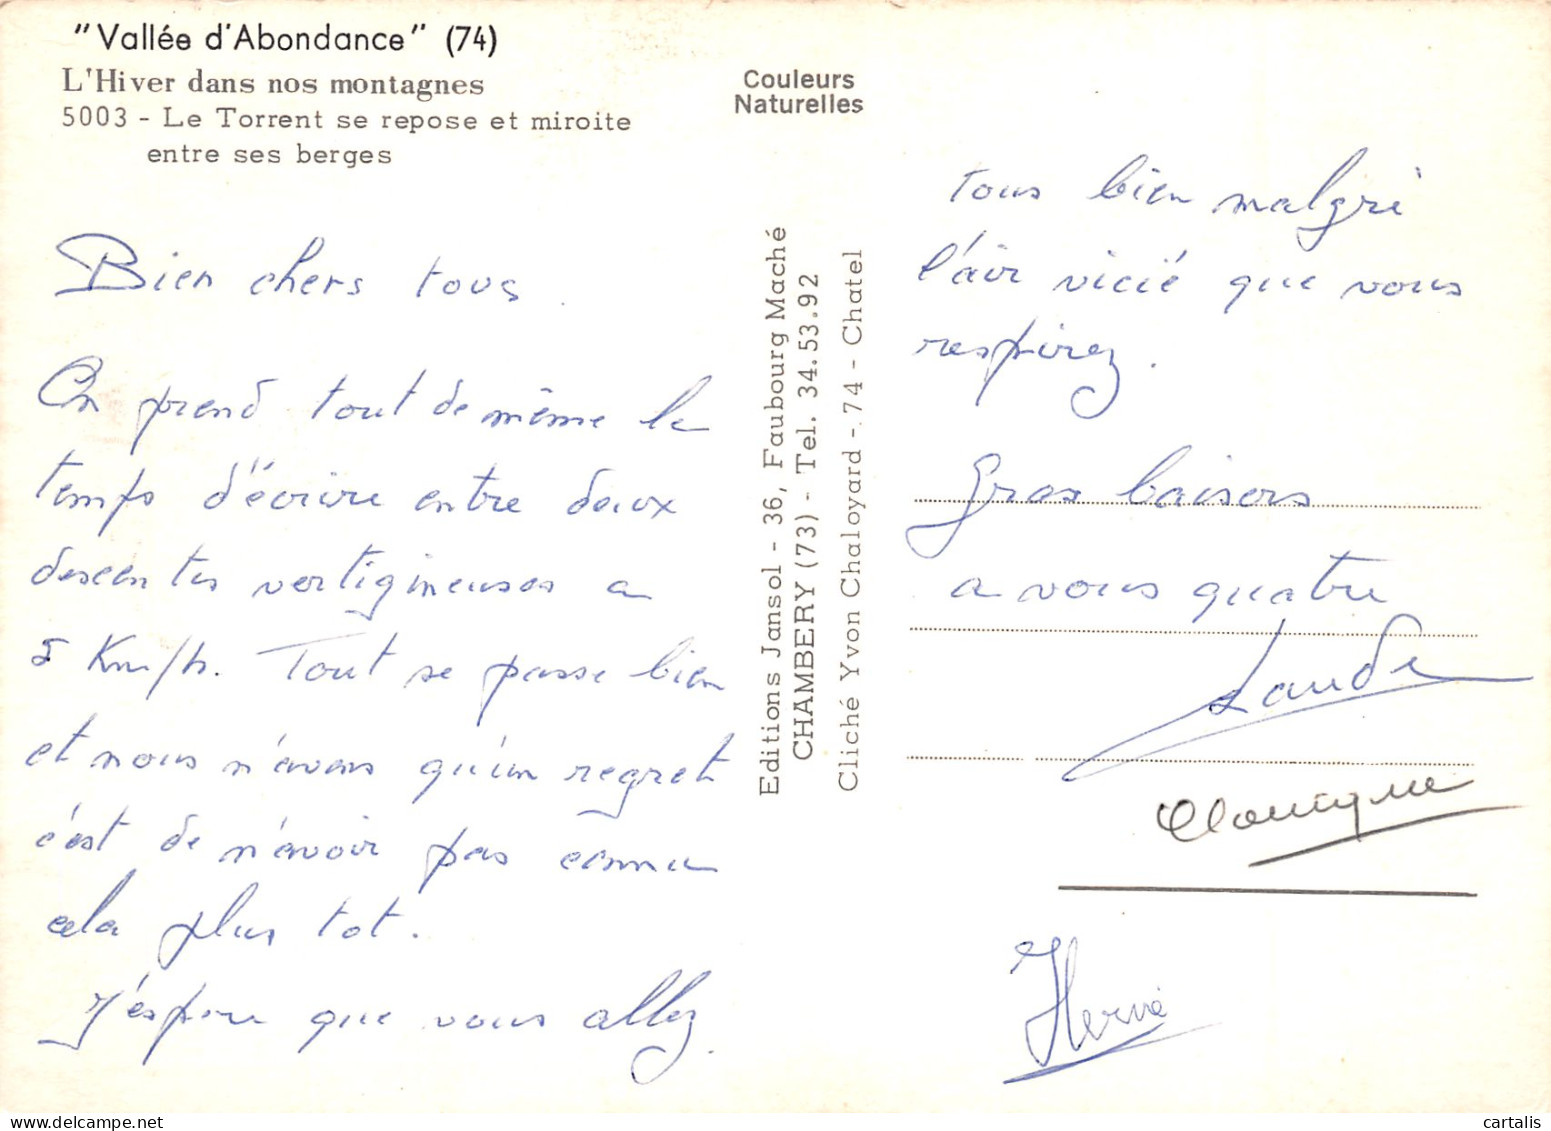 "Vallée d'Abondance" (74)
L'Hiver dans nos montagnes
5003 - Le Torrent se repose et miroite
entre ses berges
Couleurs
Naturelles
Bien chers tous.
On prend tout de même le
temps d'écrire entre deux
descentes vertigineuses a
5 Km/h. Tout se passe bien
et nous n'avons qu'un regret
c'est de n'avoir pas connu
cela plus tot.
J'espère que vous allez
Editions Jansol - 36, Faubourg Maché
CHAMBERY (73) - Tel. 34.53.92
Cliché Yvon Chaloyard - 74 - Chatel
tous bien malgré
l'air vicié que vous
respirez.
Gros baisers
a vous quatre
Hervé
cartalis